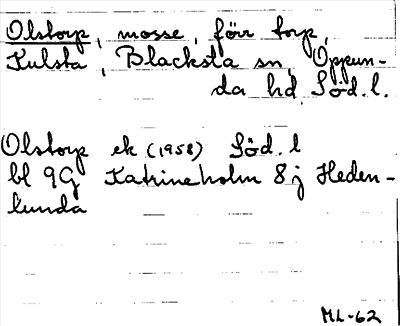 Olstorp, mosse, förr torp,
Kulsta, Blacksta sn, Oppun-
da hd, Söd. l.
Olstorp ek (1958) Söd. l
bl 9G Katrineholm 8 j Heden-
lunda
ML-62